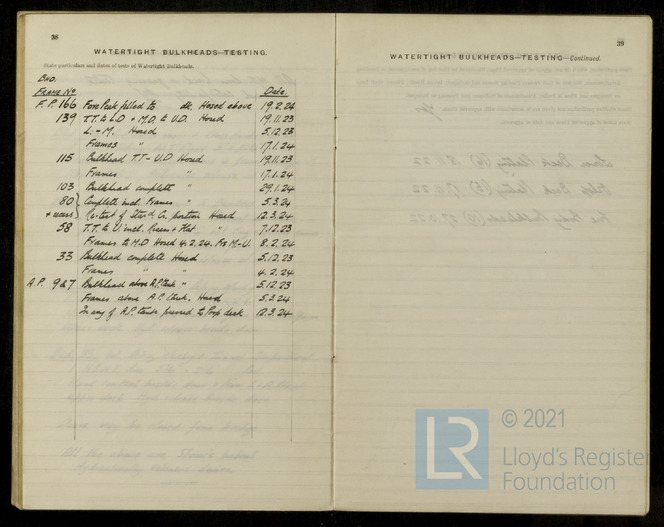 38
WATERTIGHT BULKHEADS–TESTING.
State particulars and dates of tests of Watertight Bulkheads.
BHD.
FRAME No Date.
F.P. 166 Fore Peak filled to dk. Hosed above 19.2.24
139 T.T. to L.D + M.D. to U.D. Hosed 19.11.23
L. - M. Hosed 5.12.23
Frames " 17.1.24
115 Bulkhead T.T - U.D Hosed 19.11.23
Frames " 17.1.24
103 Bulkhead complete " 29.1.24
80 Complete incl. Frames " 5.3.24
+ recess Re-test of Starbd Co. portion Hosed 12.3.24
58 T.T. to U incl. Recess + Flat " 7.12.23
Frames to M.D Hosed 4.2.24. Fr M-U. 8.2.24
33 Bulkhead complete Hosed 5.12.23
Frames " " 4.2.24
A.P. 9&7 Bulkhead above A.P. tank " 5.12.23
Frames above A.P. tank. Hosed 5.3.24
of A.P. tank pressed to Poop deck 12.3.24
39
WATERTIGHT BULKHEADS–TESTING–Continued.
© 2021
LR
Lloyd's Register
Foundation